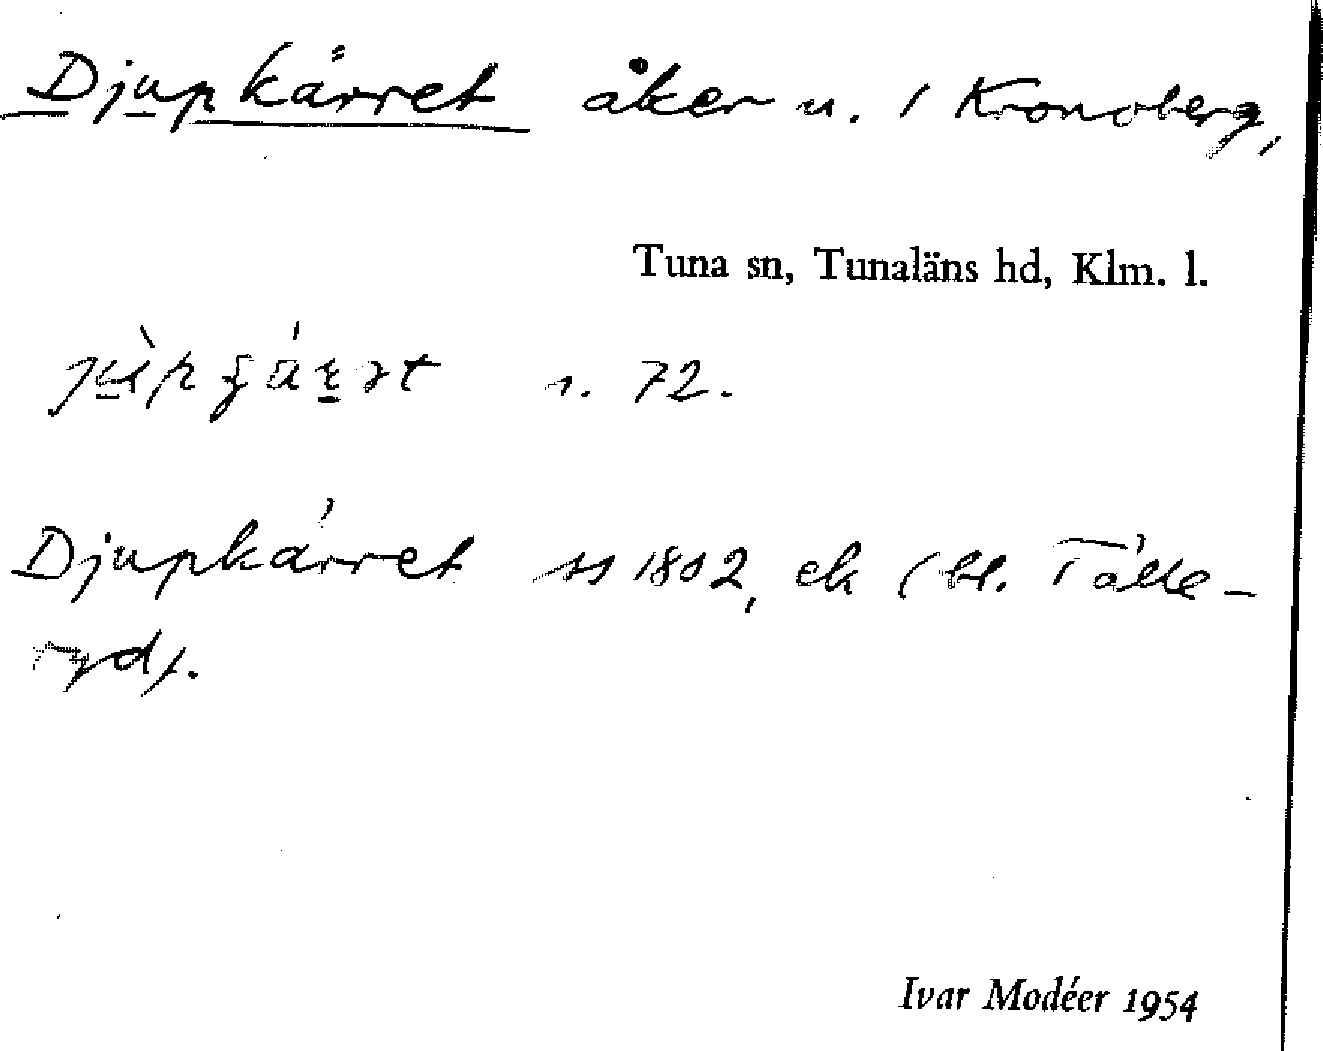 Djupkärret åker u. 1 Kronoberg,
Tuna sn, Tunaläns hd, Klm. l.
72.
Djupkärret ss 1802, ek (bl. Tälle-
ryd).
Ivar Modéer 1954